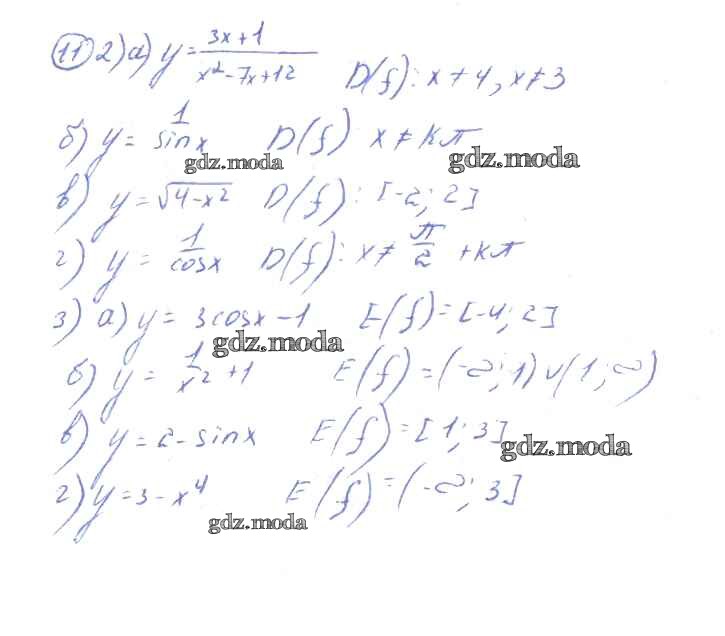 11 2) а) y = (3x+1)/(x²-7x+12) D(f): x≠4, x≠3
б) y = 1/sinx D(f) x≠kπ
gdz.moda gdz.moda
в) y = √(4-x²) D(f): [-2; 2]
г) y = 1/cosx D(f): x≠ π/2 + kπ
3) а) y = 3cosx-1 E(f)=[-4; 2]
gdz.moda
б) y = 1/x² +1 E(f)=(-∞; 1)∪(1; ∞)
в) y = 2-sinx E(f)=[1; 3]
gdz.moda
г) y = 3-x⁴ E(f)=(-∞; 3]
gdz.moda